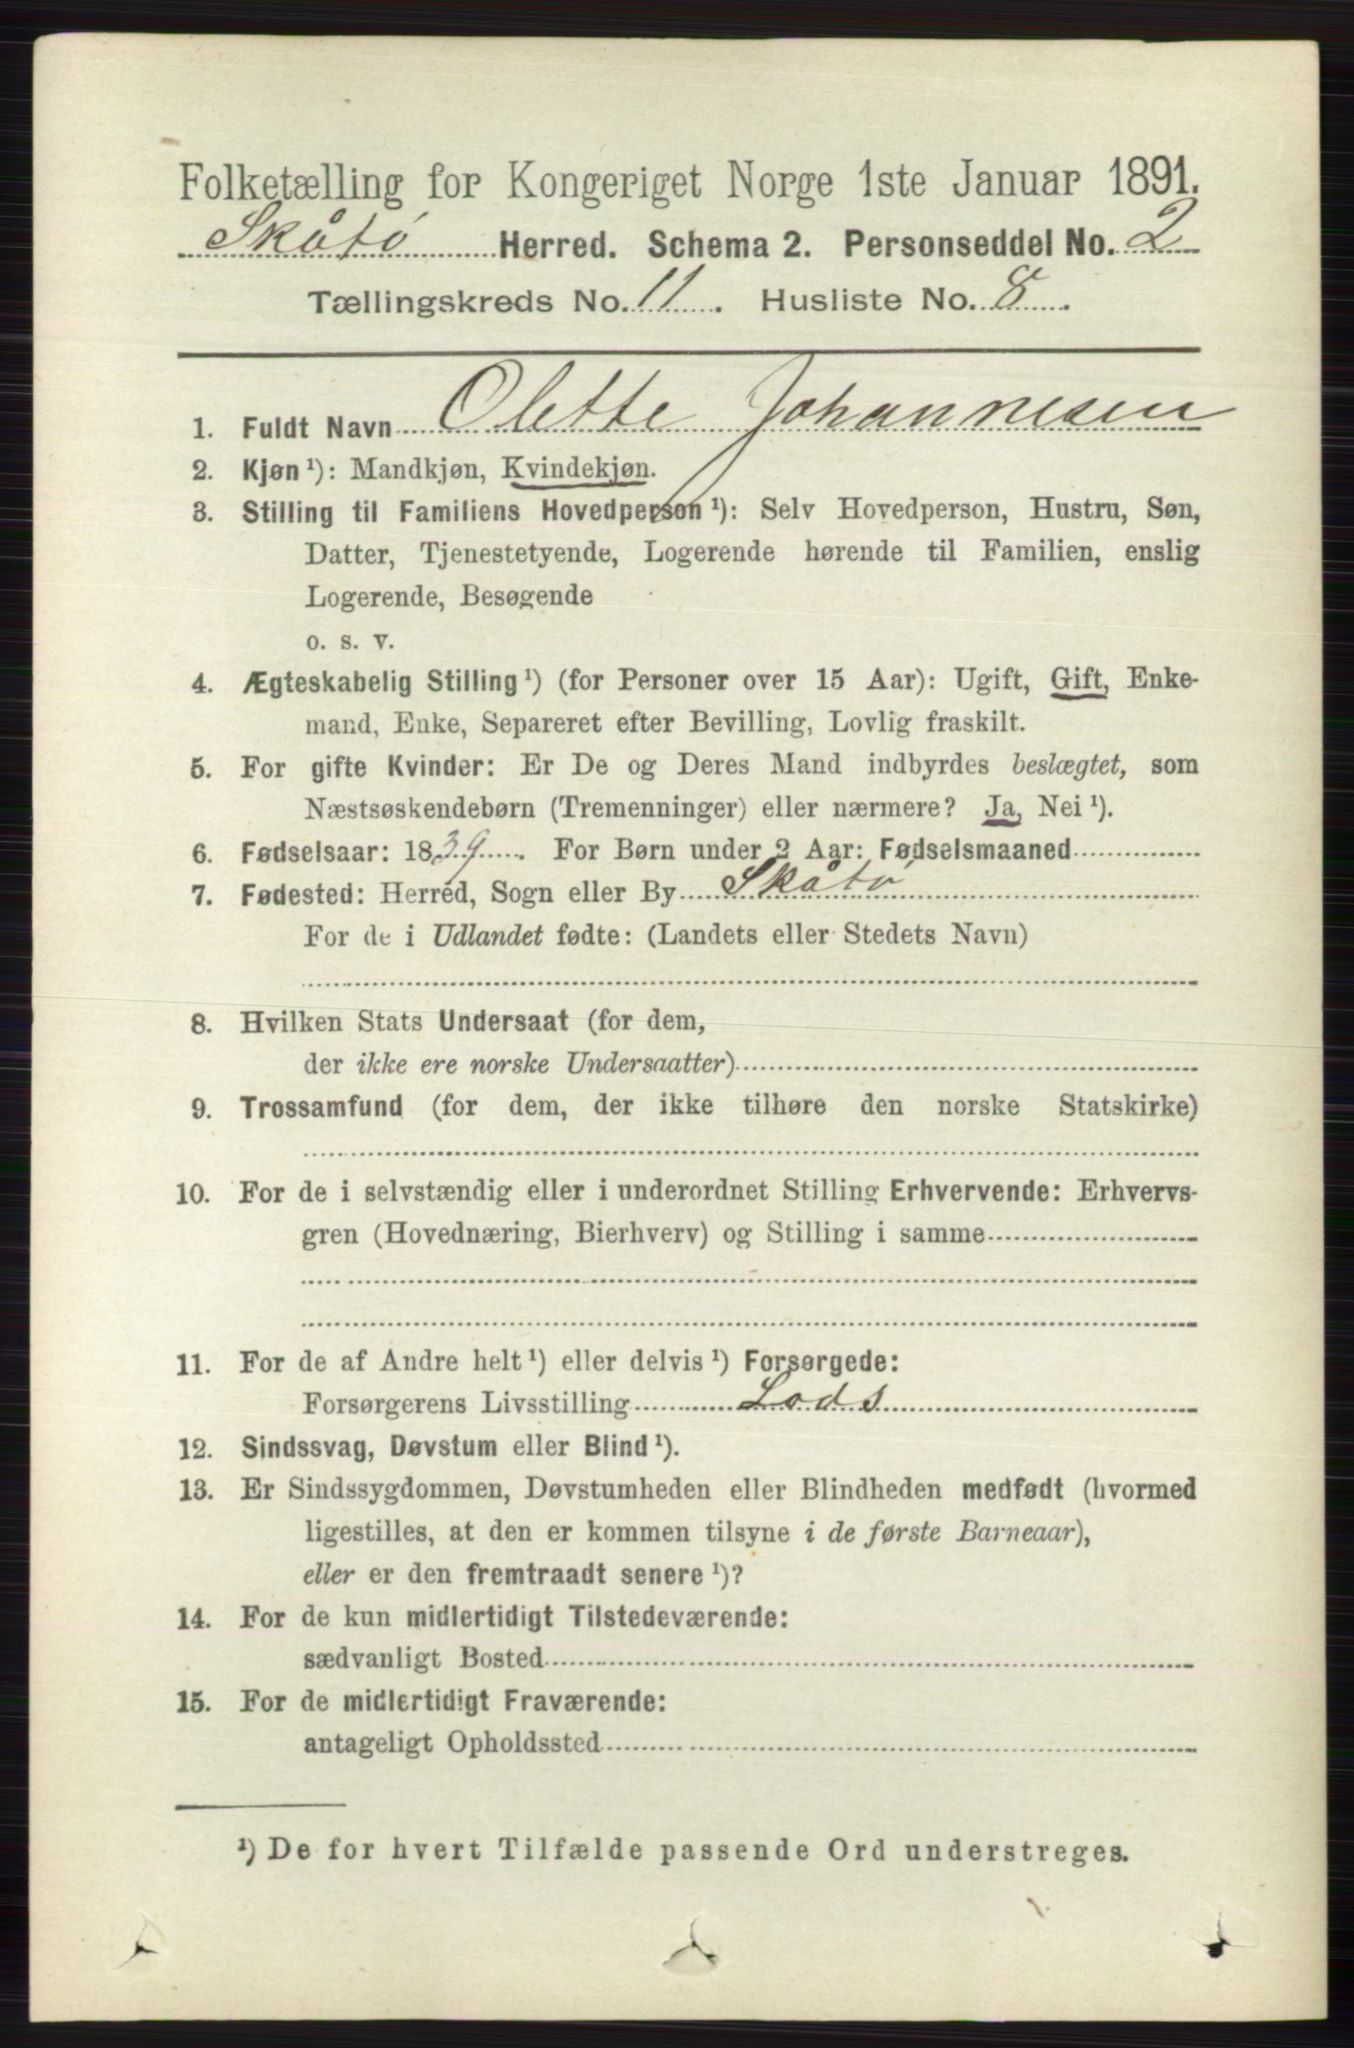 Folketælling for Kongeriget Norge 1ste Januar 1891.
Skåtø Herred. Schema 2. Personseddel No. 2
Tællingskreds No. 11. Husliste No. 8.
1. Fuldt Navn Olette Johannesen
2. Kjøn ¹): Mandkjøn, Kvindekjøn.
3. Stilling til Familiens Hovedperson ¹): Selv Hovedperson, Hustru, Søn,
Datter, Tjenestetyende, Logerende hørende til Familien, enslig
Logerende, Besøgende
o. s. v.
4. Ægteskabelig Stilling ¹) (for Personer over 15 Aar): Ugift, Gift, Enke-
mand, Enke, Separeret efter Bevilling, Lovlig fraskilt.
5. For gifte Kvinder: Er De og Deres Mand indbyrdes beslægtet, som
Næstsøskendebørn (Tremenninger) eller nærmere? Ja, Nei ¹).
6. Fødselsaar: 1839. For Børn under 2 Aar: Fødselsmaaned
7. Fødested: Herred, Sogn eller By Skåtø
For de i Udlandet fødte: (Landets eller Stedets Navn)
8. Hvilken Stats Undersaat (for dem,
der ikke ere norske Undersaatter)
9. Trossamfund (for dem, der ikke tilhøre den norske Statskirke)
10. For de i selvstændig eller i underordnet Stilling Erhvervende: Erhvervs-
gren (Hovednæring, Bierhverv) og Stilling i samme
11. For de af Andre helt ¹) eller delvis ¹) Forsørgede:
Forsørgerens Livsstilling Lods
12. Sindssvag, Døvstum eller Blind ¹).
13. Er Sindssygdommen, Døvstumheden eller Blindheden medfødt (hvormed
ligestilles, at den er kommen tilsyne i de første Barneaar),
eller er den fremtraadt senere ¹)?
14. For de kun midlertidigt Tilstedeværende:
sædvanligt Bosted
15. For de midlertidigt Fraværende:
antageligt Opholdssted
¹) De for hvert Tilfælde passende Ord understreges.